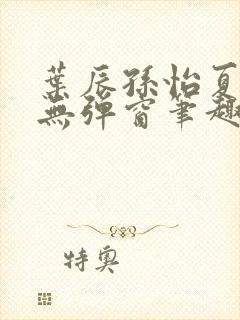 葉辰孫怡夏
無彈窗筆趣
特奧